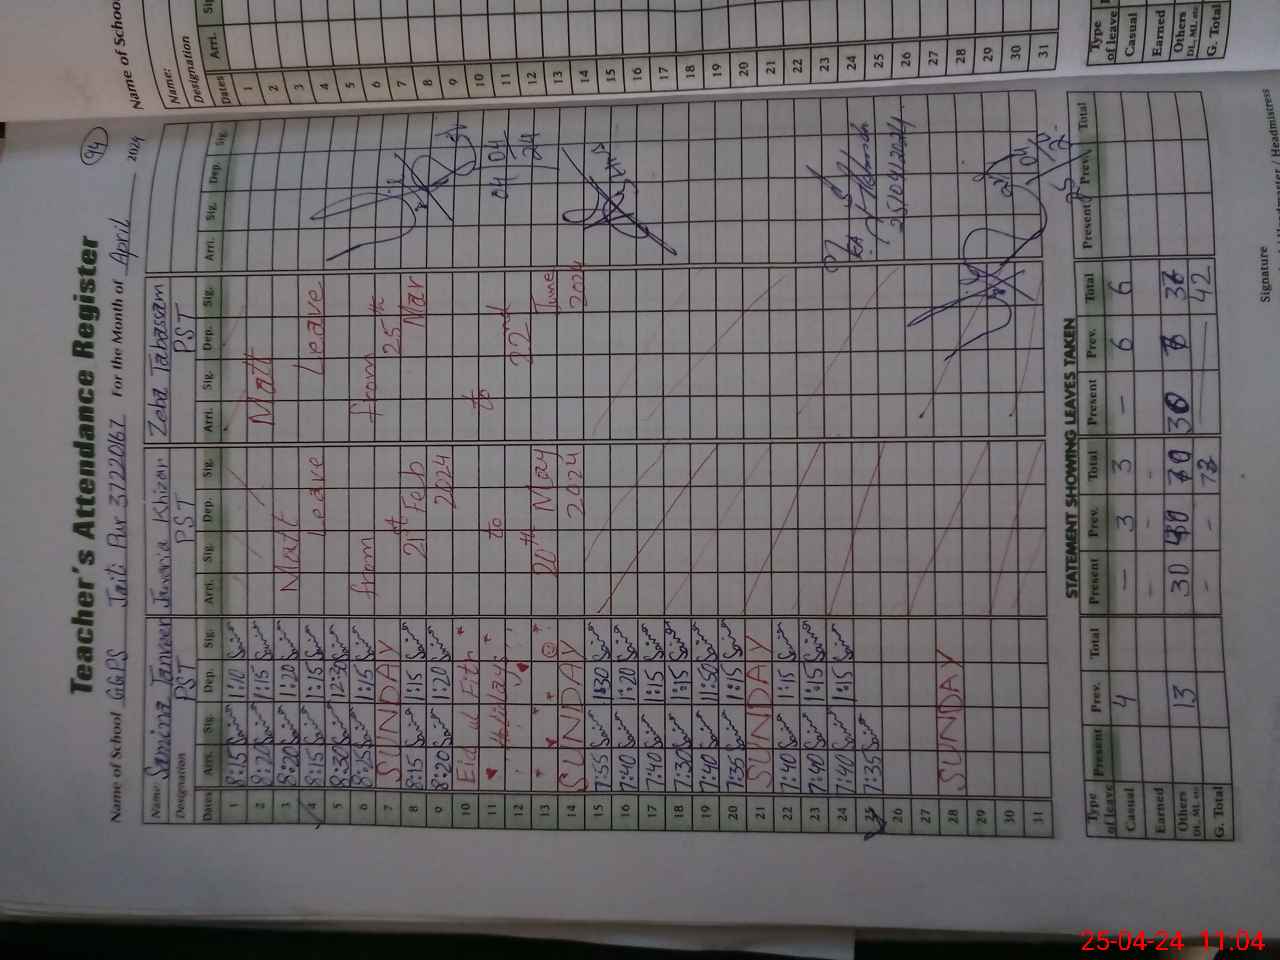 94
Teacher's Attendance Register
Name of School GGPS Jaiti Pur 3722067 For the Month of April 2024
Name: Samina Tanveer Juvaria Khizar Zeba Tabassam
Designation PST PST PST
Dates Arri. Sig. Dep. Sig. Arri. Sig. Dep. Sig. Arri. Sig. Dep. Sig. Arri. Sig. Dep. Sig.
1 8:15 1:10
2 8:20 1:15 Matt
3 8:20 1:20 Mat
4 8:15 1:15 Leave Leave
5 8:30 12:30
6 8:25 1:15 from from
7 SUNDAY 25th
8 8:15 1:15 21st Feb Mar
9 8:20 1:20 2024
10 Eid ul Fitr to
11 Holidays to 04 04
12 22nd 24
13 20th May June
14 SUNDAY 2024 2024
15 7:55 1:30
16 7:40 1:20
17 7:40 1:15
18 7:30 1:15
19 7:40 11:50
20 7:35 1:15
21 SUNDAY
22 7:40 1:15
23 7:40 1:15
24 7:40 1:15
25 7:35 25/04/2024
26
27
28 SUNDAY
29
30
31
STATEMENT SHOWING LEAVES TAKEN
Type of leave Present Prev. Total Present Prev. Total Present Prev. Total Present Prev. Total
Casual 4 — 3 3 — 6 6
Earned - -
Others DL, ML, etc 13 30 30
G. Total - - 42
Signature
Name of School
Name:
Designation
Dates Arri.
1
2
3
4
5
6
7
8
9
10
11
12
13
14
15
16
17
18
19
20
21
22
23
24
25
26
27
28
29
30
31
Type of leave
Casual
Earned
Others DL, ML, etc
G. Total
25-04-24 11.04